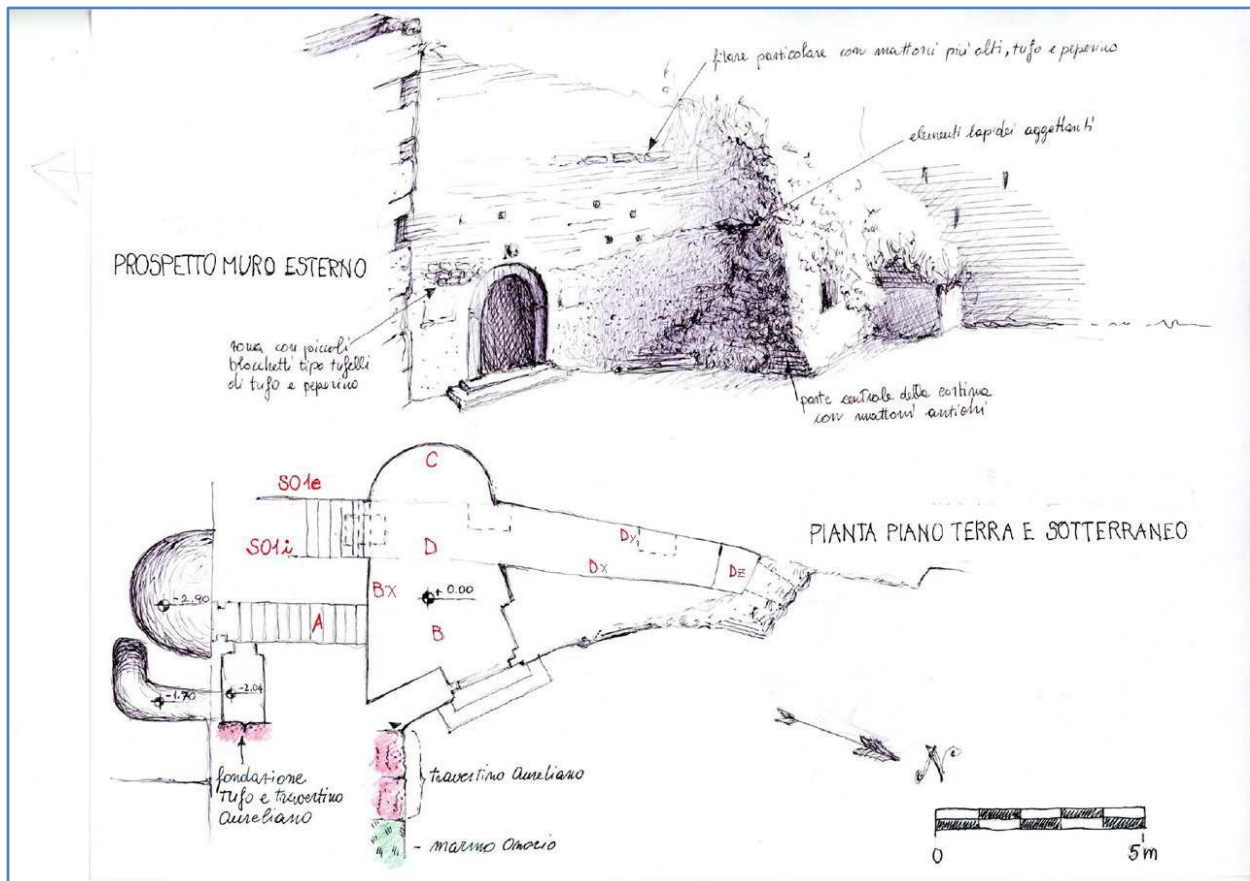 filare particolare con mattoni più alti, tufo e peperino
elementi lapidei aggettanti
PROSPETTO MURO ESTERNO
zona con piccoli
blocchetti tipo tufelli
di tufo e peperino
parte centrale della cortina
con mattoni antichi
C
SO1e
SO1i
D
Dy
Dx
Dz
PIANTA PIANO TERRA E SOTTERRANEO
BX
+0.00
-2.90
A
B
-1.70
-2.04
N
fondazione
tufo e travertino
Aureliano
travertino Aureliano
- marmo Onorio
0
5m